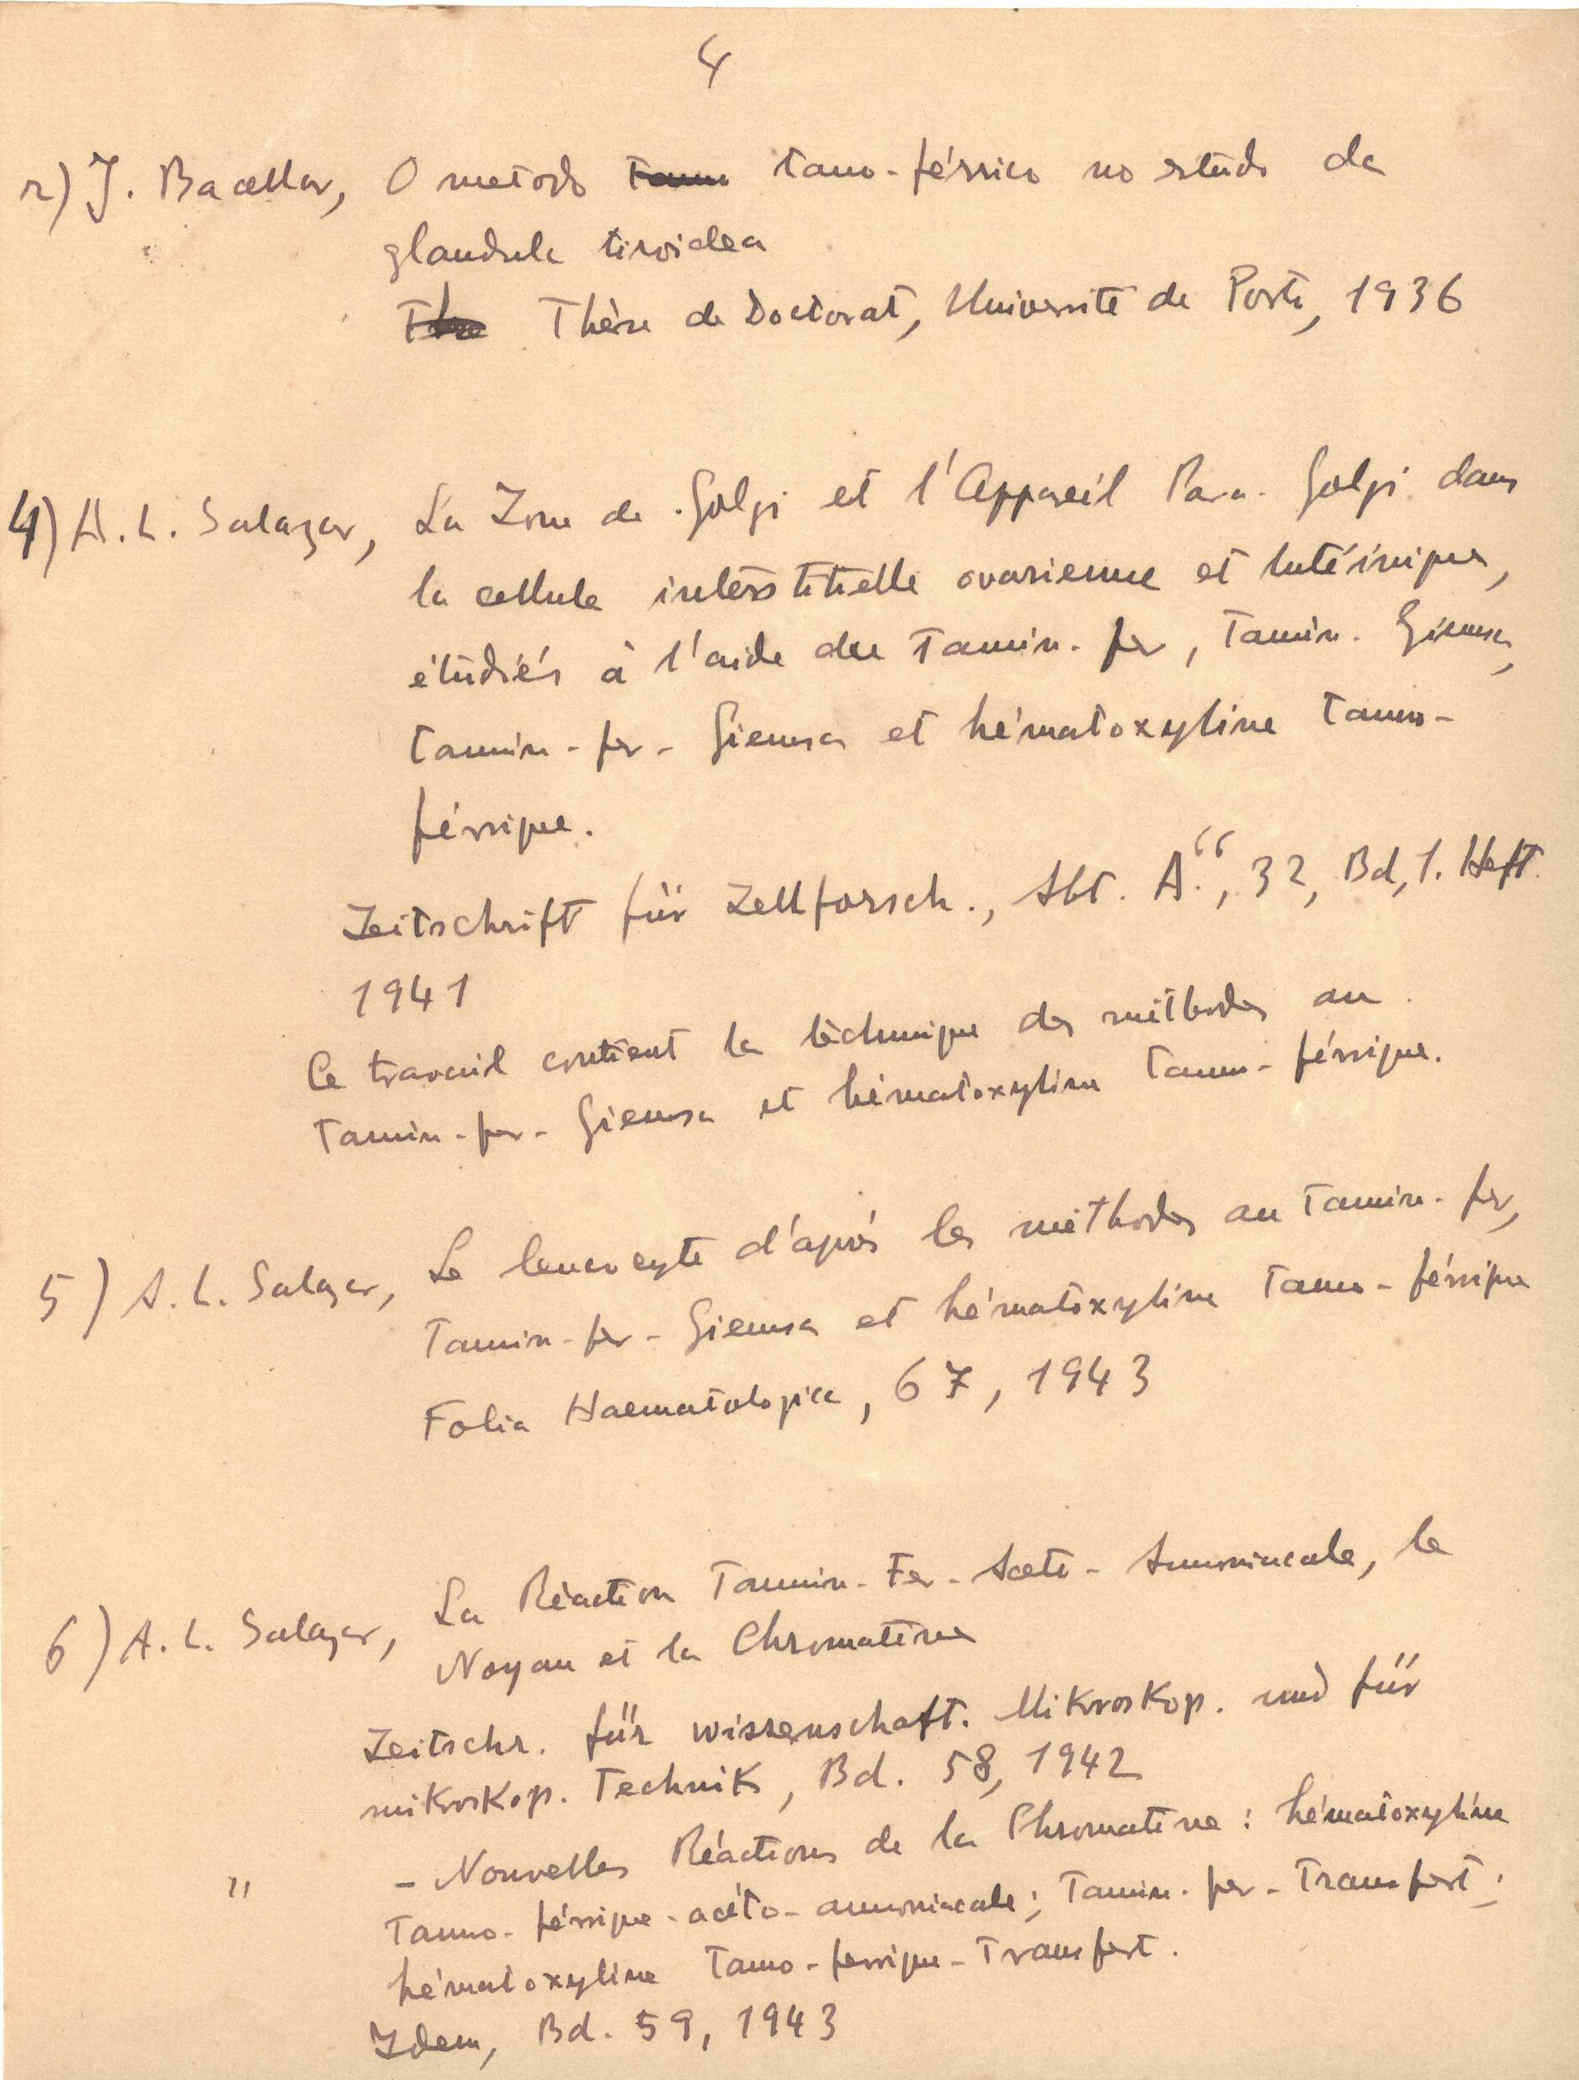 4
2) J. Bacellar, O metodo ~~Tanno~~ tano-férrico no estudo da
glandula tiroidea
~~The~~ Thèse de Doctorat, Université de Porto, 1936
4) A. L. Salazar, La Zone de Golgi et l'Appareil Para-Golgi dans
la cellule interstitielle ovarienne et lutéinique,
étudiés à l'aide du Tannin-fer, Tannin-Giemsa,
Tannin-fer-Giemsa et hématoxyline tanno-
férrique.
Zeitschrift für Zellforsch., Abt. A.“, 32, Bd, 1. Heft.
1941
Ce travail contient la téchnique des méthodes au
Tannin-fer-Giemsa et hématoxyline Tanno-férrique.
5) A. L. Salazar, Le leucocyte d'aprés les méthodes au Tannin-fer,
Tannin-fer-Giemsa et hématoxyline Tanno-férrique
Folia Haematologica, 67, 1943
6) A. L. Salazar, La Réaction Tannin-Fer-Acéto-Ammoniacale, le
Noyau et la Chromatine
Zeitschr. für wissenschaft. Mikroskop. und für
mikroskop. Technik, Bd. 58, 1942
" - Nouvelles Réactions de la Chromatine: hématoxyline
Tanno-férrique-acéto-ammoniacale; Tannin-fer-Transfert;
hématoxyline Tanno-ferrique-Transfert.
Idem, Bd. 59, 1943